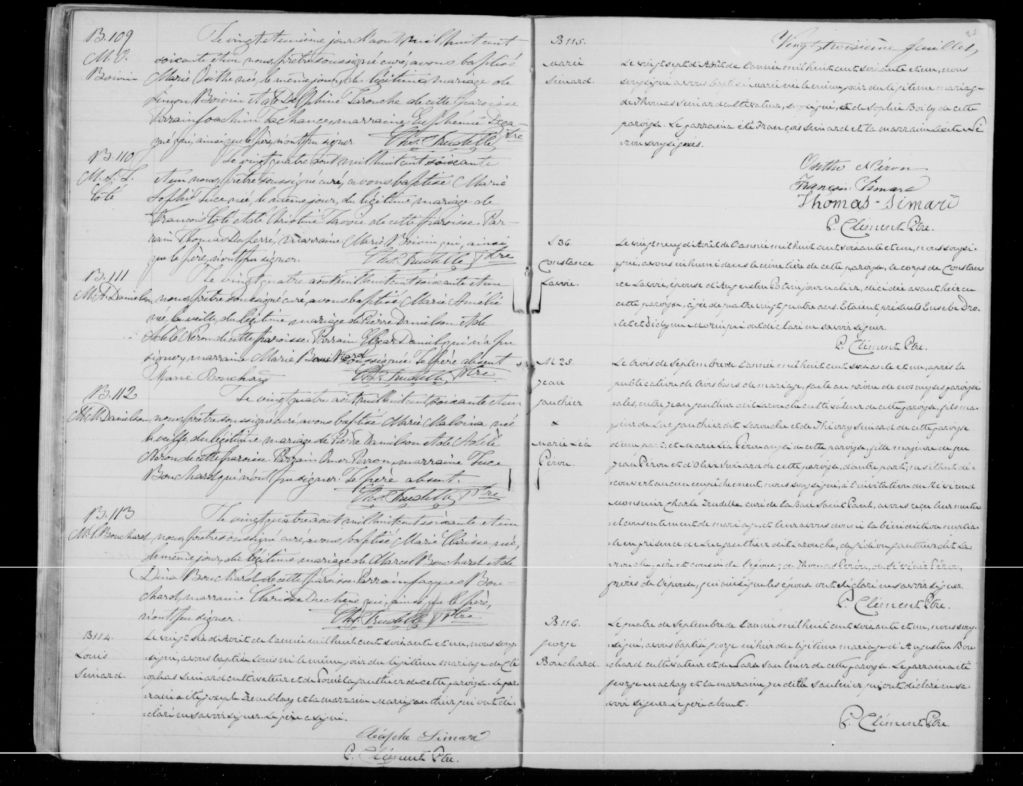 B. 109
M. O.
Boivin
Le vingt troisième jour d'aout mil huit cent
soixante et un nous prêtre soussigné curé, avons baptisé
Marie née le même jour, du légitime mariage de
Boivin et de Delphine de cette paroisse
Parrain Joachim Lachance, marraine Euphémie
qui, ainsi que le père, n'ont pu signer.
Chs. Trudelle Ptre
B. 110
M. S. L.
Coté
Le vingt quatre aout mil huit cent soixante
et un nous, prêtre soussigné curé, avons baptisé Marie
Sophie Luce née, le même jour, du légitime mariage de
François Coté et de Christine Lavoie de cette paroisse. Par-
rain Thomas marraine Marie Boivin qui, ainsi
que le père, n'ont pu signer.
Chs. Trudelle Ptre
B. 111
M. A. Danielson
Le vingt quatre aout mil huit cent soixante et un
nous prêtre soussigné curé, avons baptisé Marie
née la veille, du légitime mariage de Pierre Danielson et de
Adèle Néron de cette paroisse. Parrain qui n'a pu
signer, marraine Marie Bouchard soussignée. Le père absent
Marie Bouchard
Chs. Trudelle Ptre
B. 112
M. M. Danielson
Le vingt quatre aout mil huit cent soixante et un
nous prêtre soussigné curé, avons baptisé Marie Malvina née
la veille du légitime mariage de Pierre Danielson et de Adèle
Néron de cette paroisse Parrain Perron, marraine Luce
Bouchard qui n'ont pu signer. Le père absent.
Chs. Trudelle Ptre
B. 113
M. C. Bouchard
Le vingt quatre aout mil huit cent soixante et un
nous prêtre soussigné curé, avons baptisé Marie Clarisse née,
le même jour, du légitime mariage de Marcel Bouchard et de
Dina Bouchard de cette paroisse Parrain Jacques Bou-
chard, marraine Clarisse Duchene qui, ainsi que le père,
n'ont pu signer.
Chs. Trudelle Ptre
B 114.
Louis
Simard
Le vingt six d'Août de l'année mil huit cent soixante et un, nous sous-
signé, avons baptisé Louis né le même jour du légitime mariage de
Simard cultivateur et de Gauthier de cette paroisse Le par-
rain a été Joseph Tremblay et la marraine Marie Gauthier qui ont dé-
claré ne savoir signer. Le père a signé.
Simard
P. Clément Ptre.
Vingt troisième feuillet,
B 115.
Marie
Simard
Le vingt sept d'Août de l'année mil huit cent soixante et un, nous
soussigné avons baptisé Marie née le même jour du légitime mariage
de Thomas Simard cultivateur, soussigné, et de Sophie Boily de cette
paroisse. Le parrain a été François Simard et la marraine Né-
ron soussignés.
Néron
François Simard
Thomas Simard
P. Clément Ptre.
S 36
Constance
Lavoie.
Le vingt neuf d'Août de l'année mil huit cent soixante et un, nous soussi-
gné, avons inhumé dans le cimetière de cette paroisse, le corps de Constan-
ce Lavoie, épouse d'Augustin Potvin journalier, décédée avant hier en
cette paroisse, âgée de quatre vingt quatre ans. Etaient présents Eusèbe
et qui ont déclaré ne savoir signer.
P. Clément Ptre.
M 25.
Jean
Gauthier
&
Marie Léa
Péron.
Le trois de Septembre de l'année mil huit cent soixante et un, après la
publication de trois bans de mariage, faite au prône de nos messes parois-
siales, entre Jean Gauthier dit Larouche cultivateur de cette paroisse, fils ma-
jeur de Luc Gauthier dit Larouche et de Simard de cette paroisse
d'une part; et Marie Léa Péron aussi de cette paroisse, fille majeure de feu
Jean Péron et d' Simard de cette paroisse, d'autre part; ne s'étant dé-
couvert aucun empêchement, nous soussigné, à l'invitation de Révérend
Monsieur Charles Trudelle curé de la Baie Saint Paul, avons reçu leur mutu-
el consentement de mariage et leur avons donné la bénédiction nuptia-
le en présence de Luc Gauthier dit Larouche, de Gauthier dit La-
rouche, père et cousin de l'époux; de Thomas Péron, de Péron,
frères de l'épouse, qui ainsi que les époux ont déclaré ne savoir signer.
P. Clément Ptre.
B 116.
George
Bouchard.
Le quatre de Septembre de l'année mil huit cent soixante et un, nous sous-
signé, avons baptisé George né hier du légitime mariage d'Augustin Bou-
chard cultivateur et de Gauthier de cette paroisse. Le parrain a été
George Mackay et la marraine Judith Saulnier qui ont déclaré ne sa-
voir signer. Le père absent.
P. Clément Ptre.